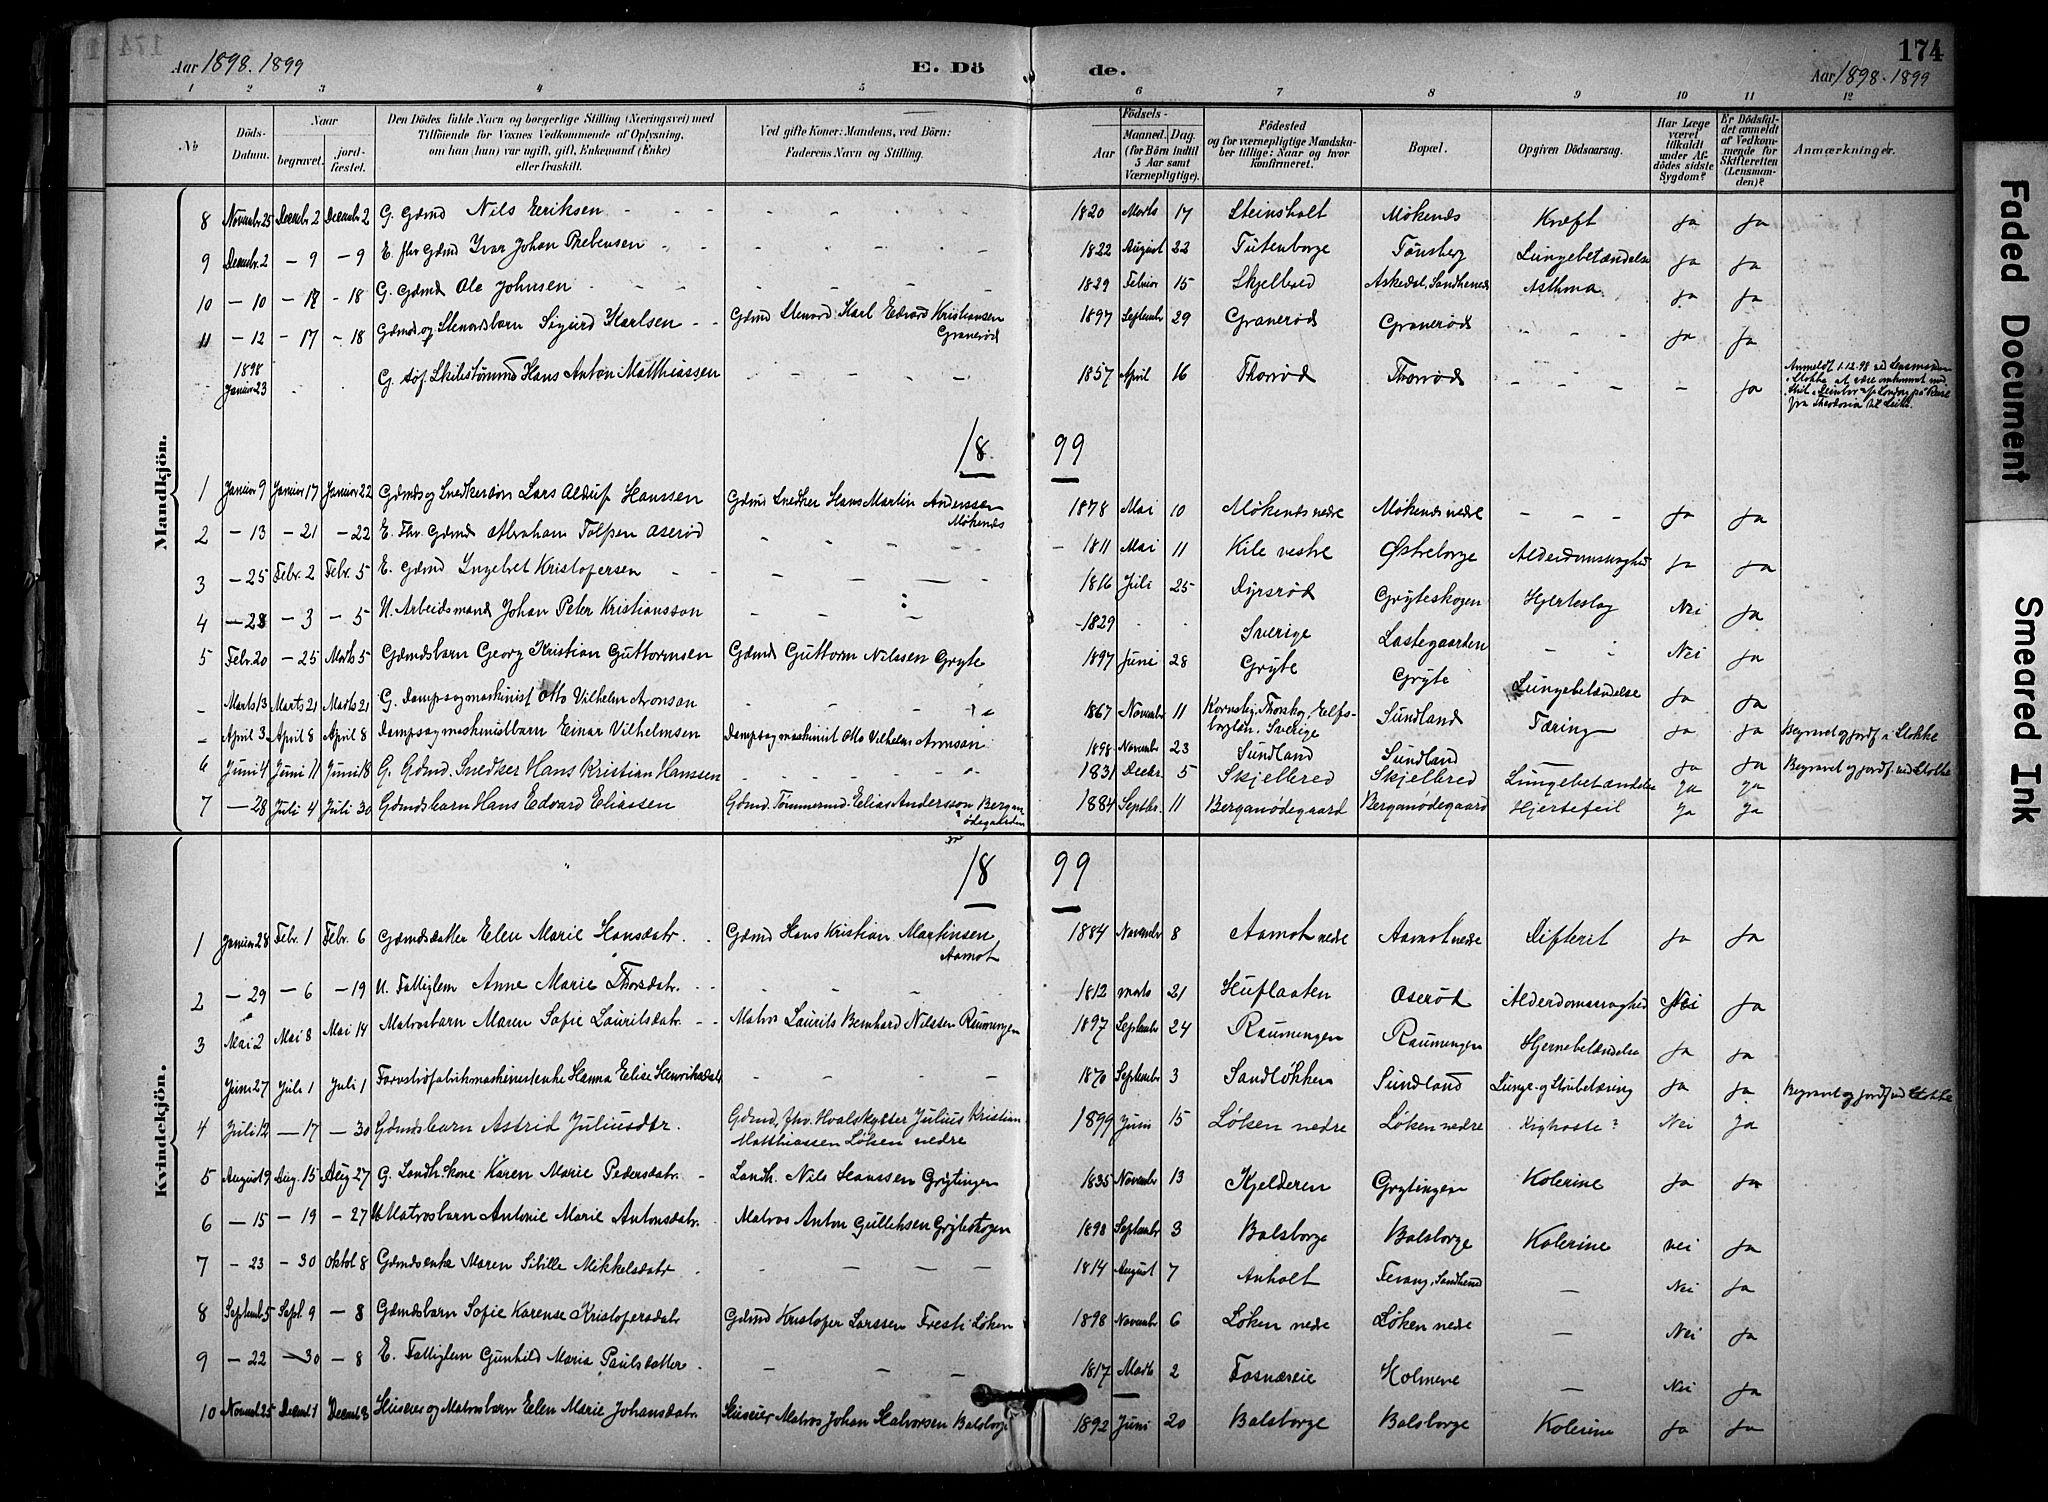 174
Aar 1898. 1899
E. Dö de.
Aar 1898. 1899
1 2 3 4 5 6 7 8 9 10 11 12
No
Döds-Datum.
Naar
begravet.
jord-fæstet.
Den Dödes fulde Navn og borgerlige Stilling (Næringsvei) med
Tilföiende for Voxnes Vedkommende af Oplysning,
om han (hun) var ugift, gift, Enkemand (Enke)
eller fraskilt.
Ved gifte Koner: Mandens, ved Börn:
Faderens Navn og Stilling.
Födsels-
Aar
Maaned. Dag.
(for Börn indtil
5 Aar samt
Værnepligtige).
Födested
og for værnepligtige Mandska-
ber tillige: Naar og hvor
konfirmeret.
Bopæl.
Opgiven Dödsaarsag.
Har Læge
været
tilkaldt
under Af-
dödes sidste
Sygdom?
Er Dödsfal-
det anmeldt
af Vedkom-
mende for
Skifteretten
(Lensman-
den)?
Anmærkninger.
Mandkjön.
8 Novembr 25 Decembr 2 Decembr 2 G. Gdmd Nils Eeriksen - - - 1820 Marts 17 Steinsholt Møkenæs Kræft ja ja
9 Decembr. 2 - 9 - 9 E. fhv Gdmd Ivar Johan Prebensen - - - 1822 August 22 Tutenborge Tønsberg Lungebetændelse ja ja
10 - 10 - 18 - 18 G. Gdmd Ole Johnsen - - - 1829 Februar 15 Skjelbred Askedal, Sandhered Asthma ja ja
11 - 12 - 17 - 18 Gdmds og Stenardsbarn Sigurd Karlsen - - Gdmd Stenard Karl Edvard Kristiansen Granerød 1897 September 29 Granerød Granerød - - - ja ja
1898
Januar 23 G. Skibstømmd Hans Anton Matthiassen - - - 1857 April 16 Thorrød Thorrød - - - - ja Anmeldt 1.12.98
18 99
1 Januar 9 Januar 17 Januar 22 Gdmds og Snedkersøn Lars Alduf Hanssen Gdmd Snedker Hans Martin Anderssen Møkenæs 1878 Mai 10 Møkenæs nedre Møkenæs nedre - - - ja ja
2 - 13 - 21 - 22 E. Fhv Gdmd Abraham Tolfsen Oserød - - - 1811 Mai 11 Kile vestre Østreborge Alderdomssvaghed ja ja
3 - 25 Febr. 2 Febr. 5 E. Gdmd Ingebret Kristofersen - - - 1816 Juli 25 Dyrsrød Gryteskogen Hjerteslag Nei ja
4 - 28 - 3 - 5 U. Arbeidsmand Johan Peter Kristiansson - - - 1829 - - Sverige Lastegaarden - - Nei ja
5 Febr. 20 - 25 Marts 5 Gdmdsbarn Georg Kristian Guttormsen Gdmd Guttorm Nilssen Gryte 1897 Juni 28 Gryte Gryte Lungebetændelse ja ja
- Marts 13 Marts 21 Marts 21 G. Dampsagmaskinist Otto Vilhelm Aronson - - 1867 November 11 Sverige Sundland Tæring ja ja Begravet og jordf. i Stokke
- April 3 April 8 April 8 Dampsagmaskinistbarn Einar Vilhelmsen Dampsagmaskinist Otto Vilhelm Aronson 1898 November 23 Sundland Sundland - ja ja Begravet og jordf. ved Stokke
6 Juni 4 Juni 11 Juni 18 G. Gdmd. Snedker Hans Kristian Hanssen - - - 1831 Decbr. 5 Skjelbred Skjelbred Lungebetændelse ja ja
7 - 28 Juli 4 Juli 30 Gdmdsbarn Hans Edvard Eliassen Gdmd. Tømmermd. Elias Andersson Bergan ødegaarden 1884 Septbr. 11 Berganødegaard Berganødegaard Hjertefeil ja ja
Kvindekjön.
18 99
1 Januar 28 Febr. 1 Febr. 6 Gdmdsdatter Elen Marie Hansdatr. - - Gdmd Hans Kristian Martinsen Aamot 1884 November 8 Aamot nedre Aamot nedre Difterit ja ja
2 - 29 - 6 - 19 U. Fattiglem Anne Marie Thorsdatr. - - - 1812 Marts 21 Huflaaten Oserød Alderdomssvaghed Nei ja
3 Mai 2 Mai 8 Mai 14 Matrosbarn Maren Sofie Lauritsdatr. - - Matros Laurits Bernhard Nilssen Raumengen 1897 September 24 Raumengen Raumengen Hjernebetændelse ja ja
Juni 27 Juli 1 Juli 1 Hanna Elise Henriksdatr - - - 1870 September 3 Sandløkken Sundland Lunge- og Strubetæring ja ja Begravet og jordf. ved Stokke
4 Juli 12 - 17 - 30 Gdmdsbarn Astrid Juliusdtr. Gdmd, fhv. Hvalskytter Julius Kristian Matthiassen Løken nedre 1899 Juni 15 Løken nedre Løken nedre Kighoste? Nei ja
5 August 9 Aug. 15 Aug 27 G. Landh. kone Karen Marie Pedersdatr. - Landh. Nils Hanssen Grytingen 1835 November 13 Kjelderen Grytingen Kolerine ja ja
6 - 15 - 19 - 27 Matrosbarn Antonie Marie Antonsdatr. Matros Anton Gulliksen Gryteskogen 1898 September 3 Balsborge Balsborge Kolerine nei ja
7 - 23 - 30 Oktob 8 Gdmdsenke Maren Sibille Mikkelsdatr - - - 1814 August 7 Anholt Fevang, Sandherred - Nei ja
8 Septemb. 5 Sept. 9 - 8 Gdmdsbarn Sofie Karense Kristofersdatr Gdmd Kristofer Larssen Fresti Løken 1898 November 6 Løken nedre Løken nedre - Nei ja
9 - 22 - 30 - 8 E. Fattiglem Gunhild Maria Paulsdatter - - - 1817 Marts 2 Fosnæseie Holmene - Nei ja
10 Novemb 25 Decemb 1 Decemb 8 Huseier og Matrosbarn Elen Marie Johansdatr. Huseier Matros Johan Halvorsen Balsborge 1892 Juni 20 Balsborge Balsborge Kolerine ja ja
Faded Document
Smeared Ink